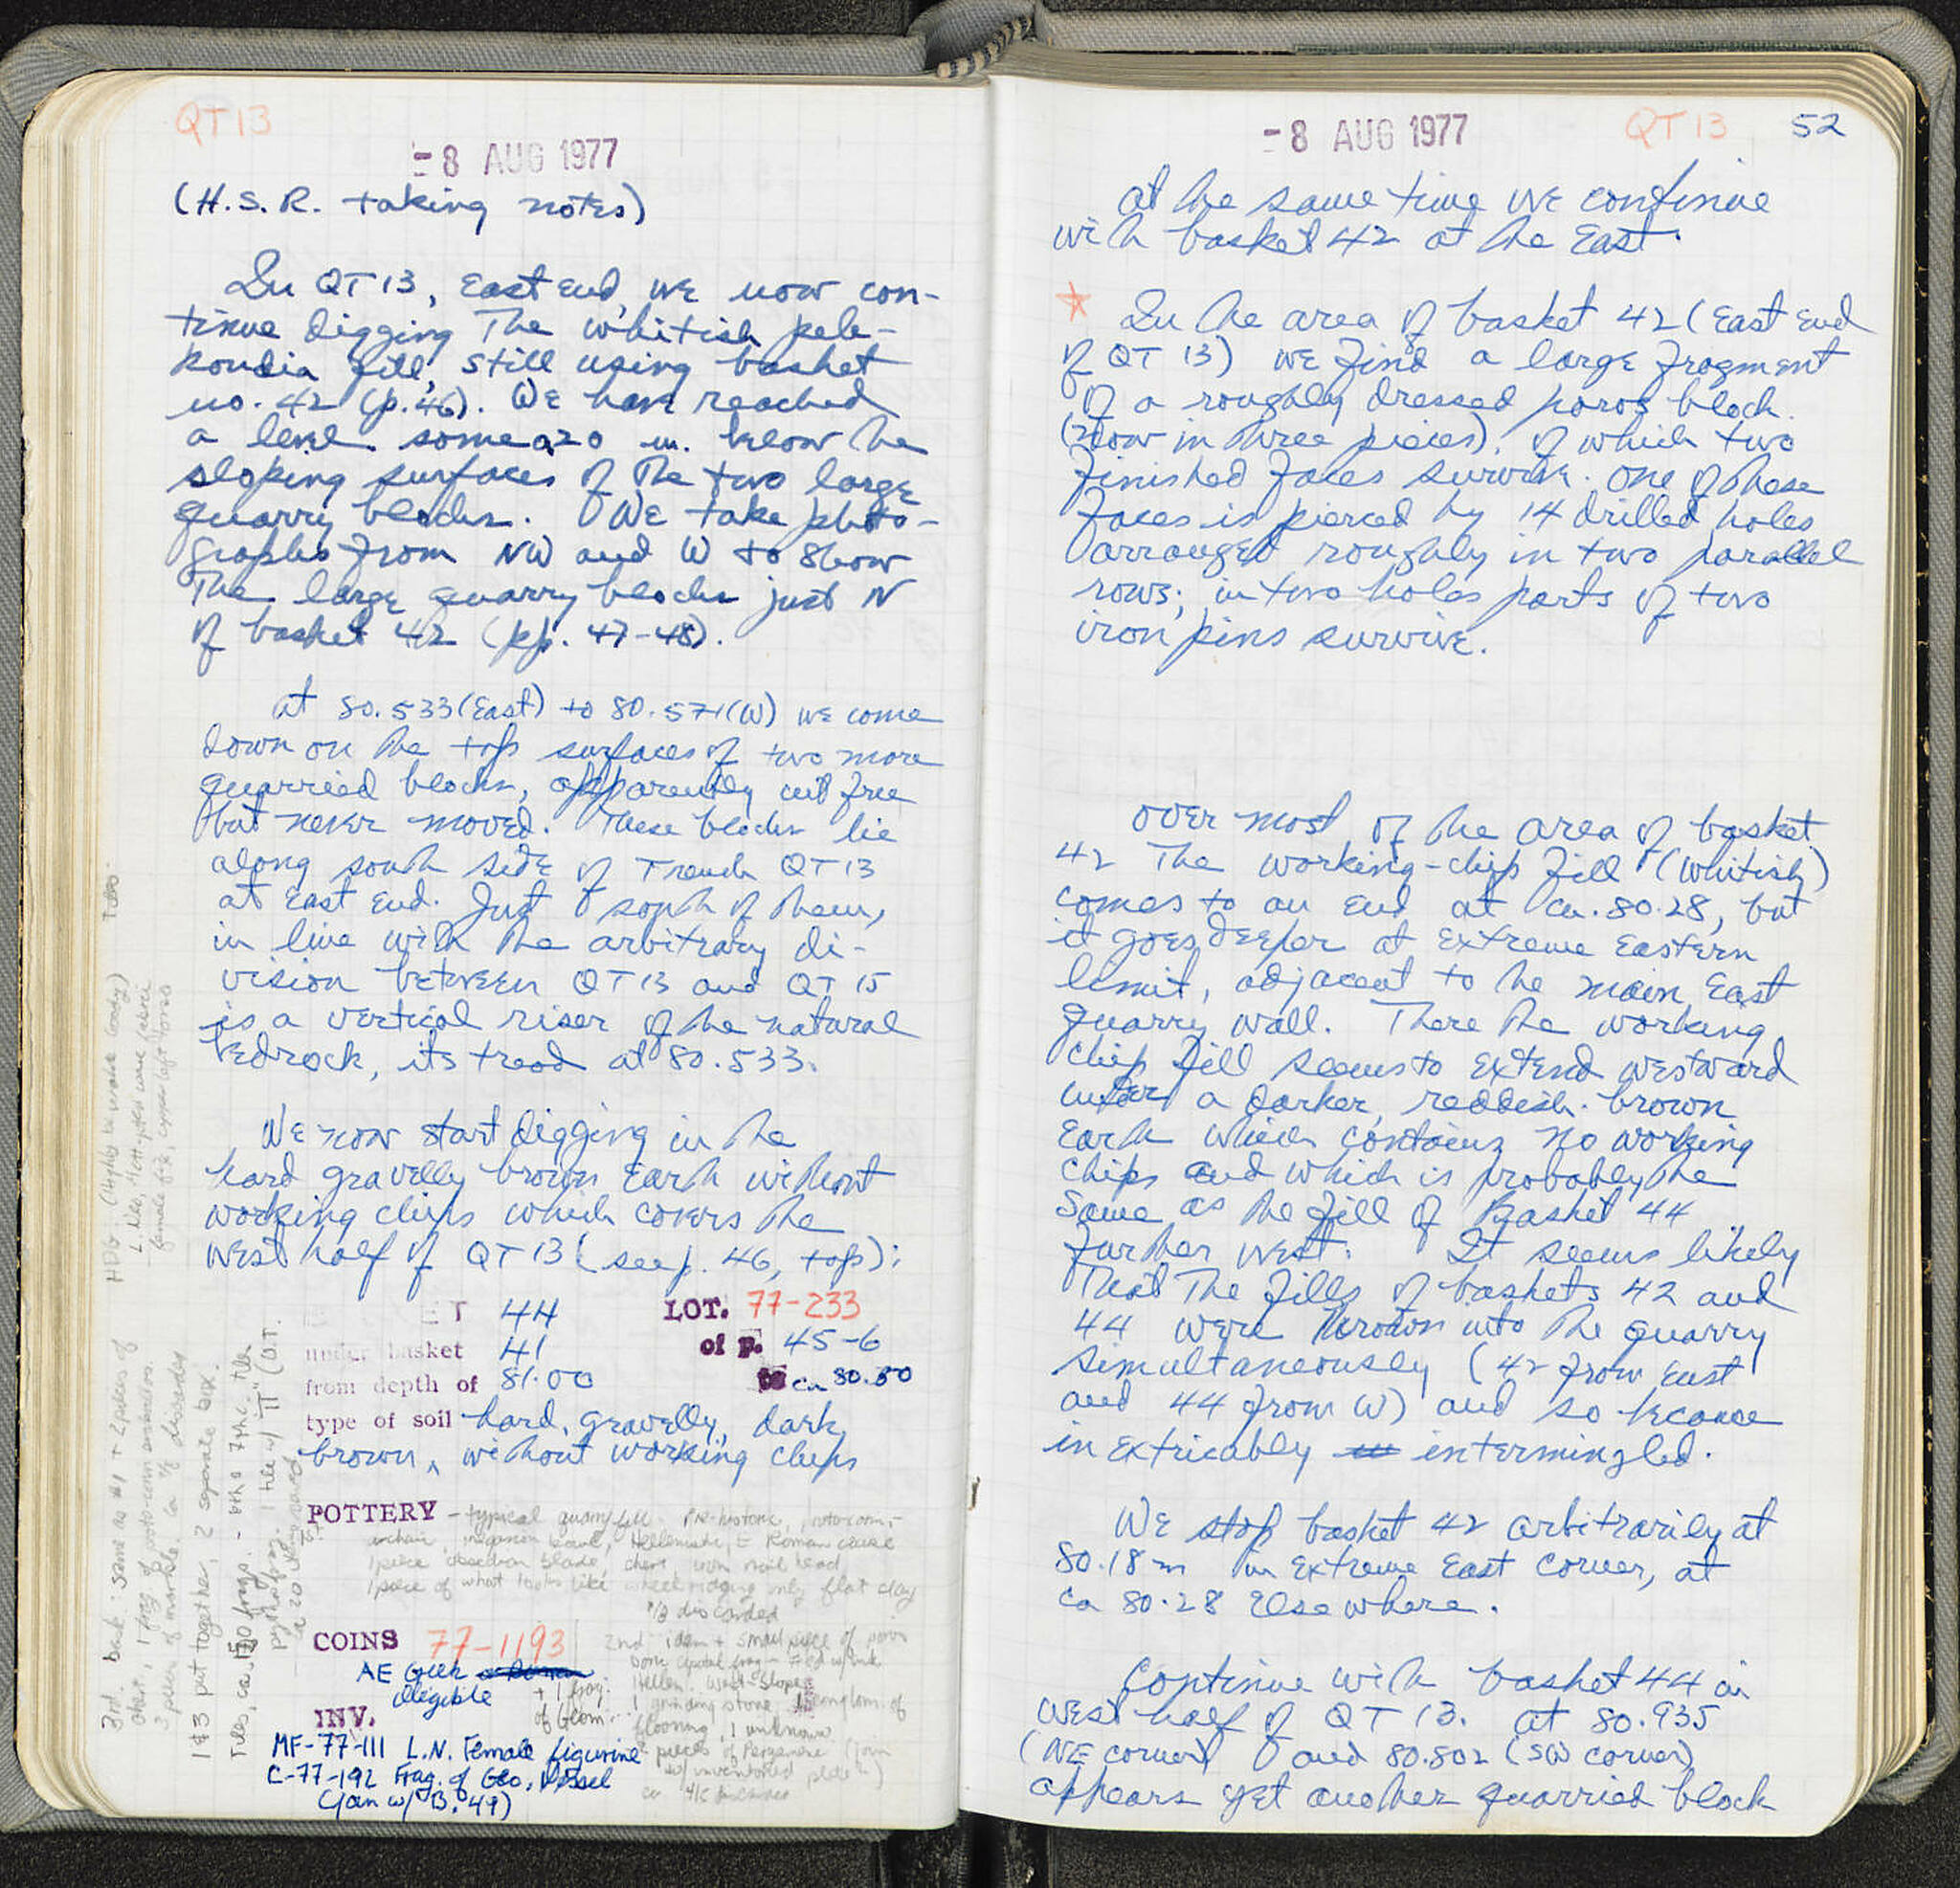 QT 13
-8 AUG 1977
(H.S.R. taking notes)
In QT 13, East End, we now con-
tinue digging The whitish pele-
koudia fill, still using basket
no. 42 (p. 46). We have reached
a level some 0.20 m. below the
sloping surfaces of The two large
quarry blocks. We take photo-
graphs from NW and W to show
The large quarry blocks just N
of basket 42 (pp. 47-48).
at 80.533 (East) to 80.571 (W) we come
down on the top surfaces of two more
quarried blocks, apparently cut free
but never moved. These blocks lie
along south side of Trench QT 13
at East End. Just south of them,
in line with the arbitrary di-
vision between QT 13 and QT 15
is a vertical riser of the natural
bedrock, its tread at 80.533.
We now start digging in the
hard gravelly brown earth without
working chips which covers the
west half of QT 13 (see p. 46, top):
ET 44 LOT. 77-233
under basket 41 of p. 45-6
from depth of 81.00 to ca 80.80
type of soil hard, gravelly, dark
brown, without working chips
POTTERY - typical quarry fill. Pre-historic, proto-corin-
Hellenistic, E Roman
1 piece obsidian blade, chert, iron nail head
1 piece of what looks like wheel ridging only flat clay
discarded
COINS 77-1193
AE Geek or Roman
illegible
+ 1 frag.
of Geom.
2nd: idem + small piece of poros
Hellen. West-Slope
1 grinding stone
flooring, 1 unknown
pieces of Pergamene (join
w/ inventoried plate)
INV.
MF-77-111 L.N. Female figurine
C-77-192 Frag. of Geo. Vessel
(join w/ B. 49)
3rd. bask: same as #1 + 2 pieces of
1 & 3 put together, 2 separate box.
female fig, upper left torso
-8 AUG 1977 QT 13 52
at the same time we continue
with basket 42 at the East.
In the area of basket 42 (East End
of QT 13) we find a large fragment
of a roughly dressed poros block
(now in three pieces), of which two
finished faces survive. One of these
faces is pierced by 14 drilled holes
arranged roughly in two parallel
rows; in two holes parts of two
iron pins survive.
Over most of the area of basket
42 The working-chip fill (whitish)
comes to an end at ca. 80.28, but
it goes deeper at extreme Eastern
limit, adjacent to the main East
quarry wall. There the working
chip fill seems to extend westward
under a darker, reddish-brown
earth which contains no working
chips and which is probably the
same as the fill of Basket 44
further west. It seems likely
That The fills of baskets 42 and
44 were thrown into the quarry
simultaneously (42 from East
and 44 from W) and so became
inextricably intermingled.
We stop basket 42 arbitrarily at
80.18 m in extreme East corner, at
ca 80.28 Elsewhere.
Continue with basket 44 in
West half of QT 13. At 80.935
(NE corner) and 80.802 (SW corner)
appears yet another quarried block